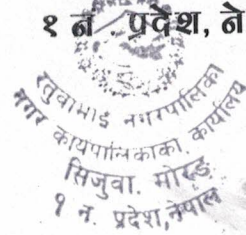 १ नं. प्रदेश, ने
रतुवामाई नगरपालिका
नगर कार्यपालिकाको कार्यालय
सिजुवा, मोरङ
१ नं. प्रदेश, नेपाल